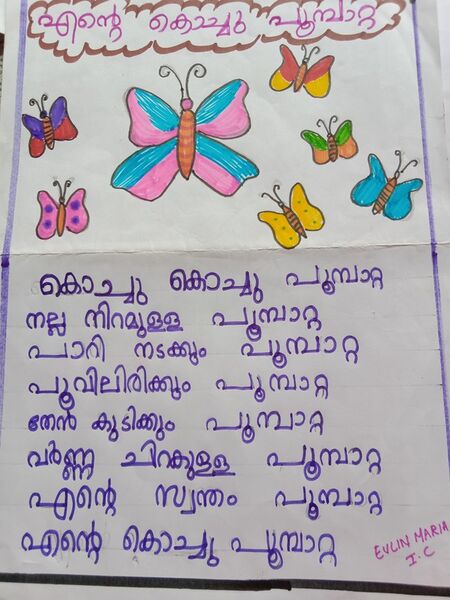 എന്റെ കൊച്ചു പൂമ്പാറ്റ
കൊച്ചു കൊച്ചു പൂമ്പാറ്റ
നല്ല നിറമുള്ള പൂമ്പാറ്റ
പാറി നടക്കും പൂമ്പാറ്റ
പൂവിലിരിക്കും പൂമ്പാറ്റ
തേൻ കുടിക്കും പൂമ്പാറ്റ
വർണ്ണ ചിറകുള്ള പൂമ്പാറ്റ
എന്റെ സ്വന്തം പൂമ്പാറ്റ
എന്റെ കൊച്ചു പൂമ്പാറ്റ
EVLIN MARIA
I.C